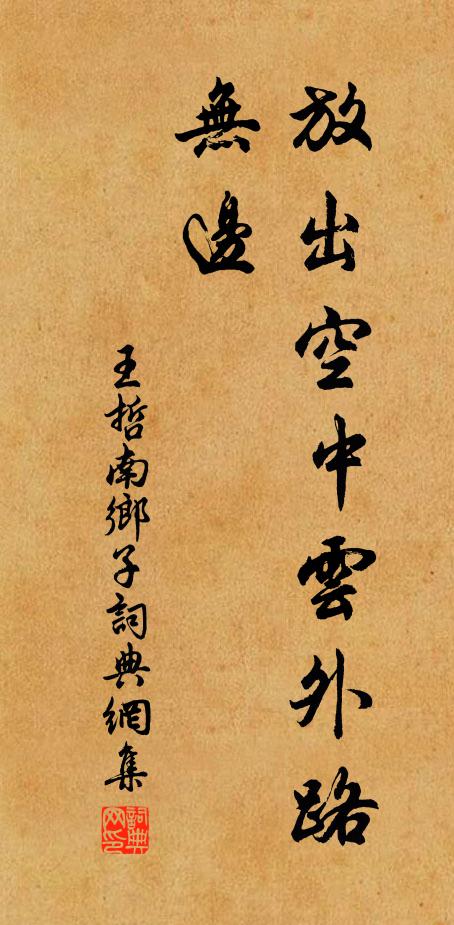 放出空中雲外路
無邊
王哲南鄉子詞典網集
詞典网印